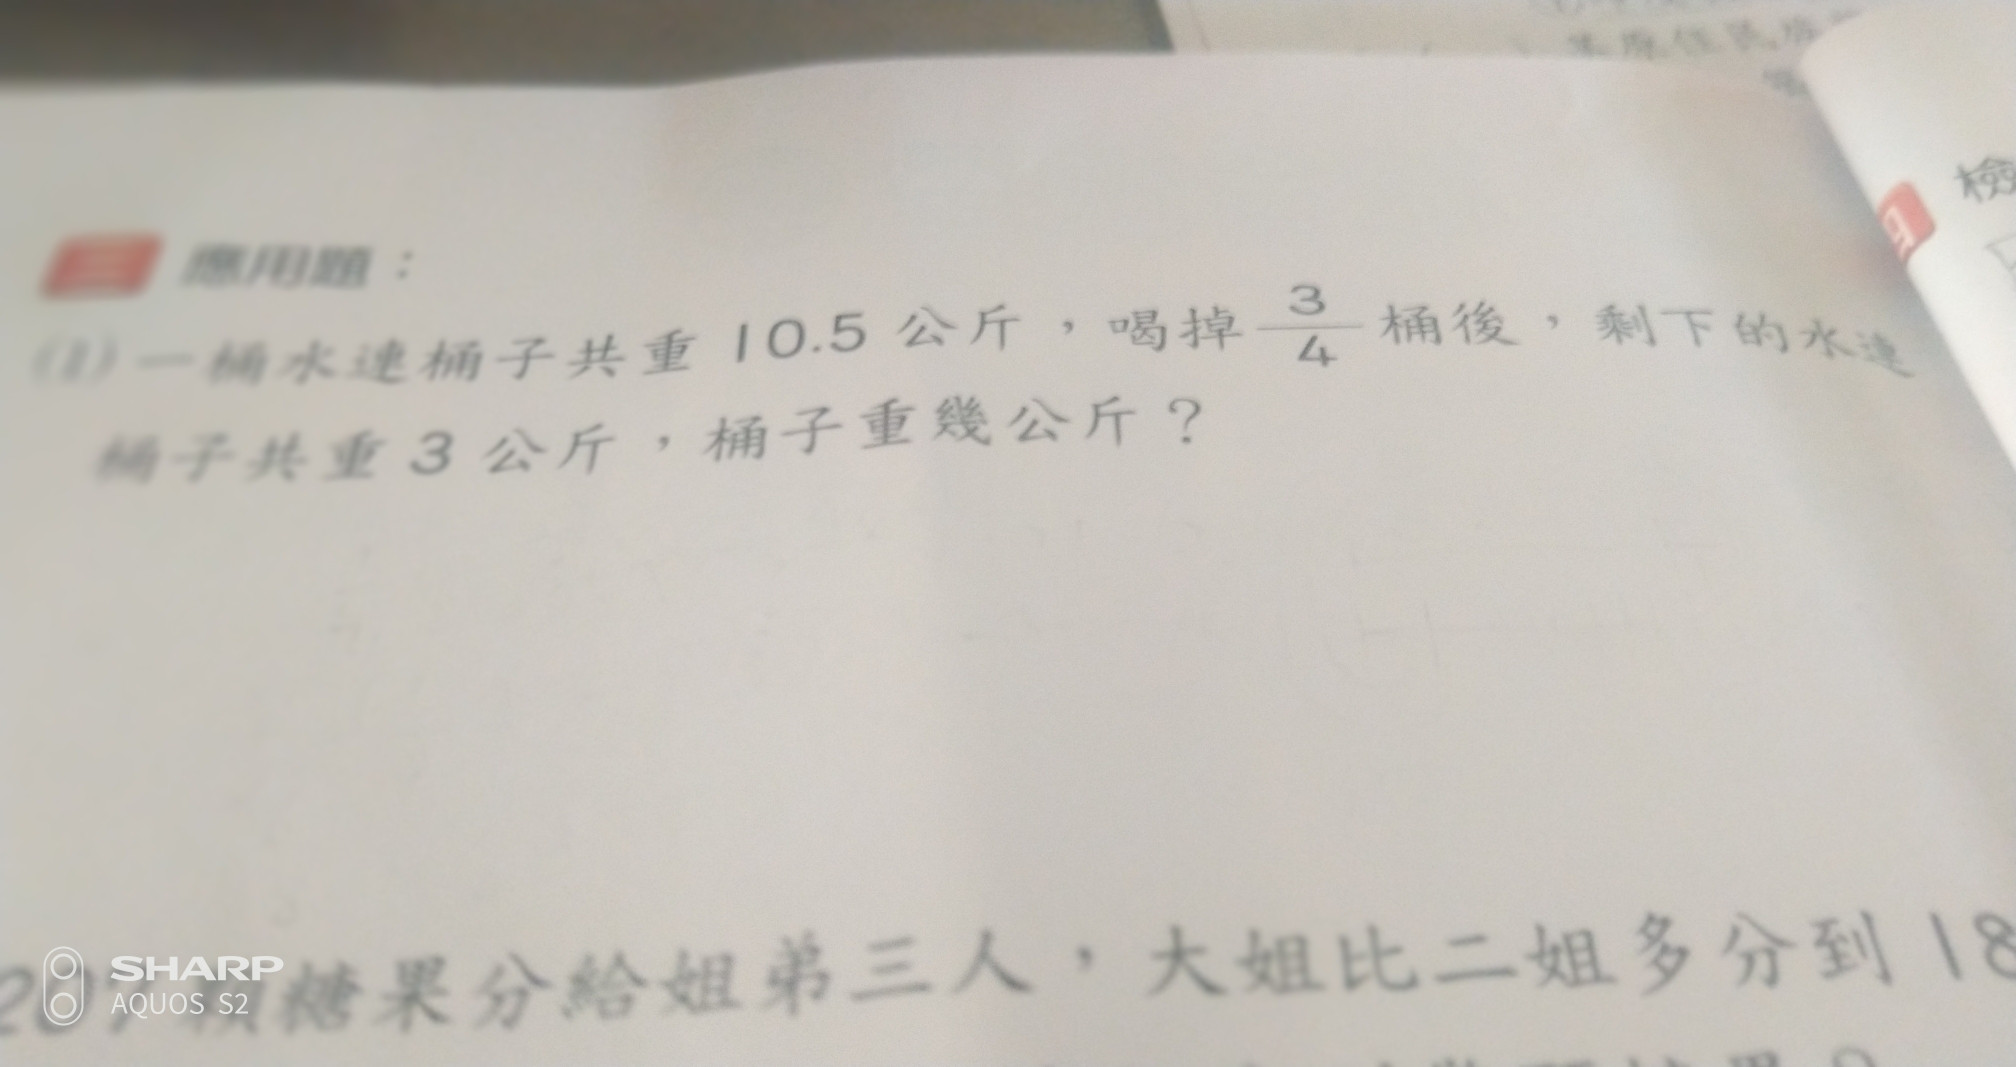 三 應用題：
(1) 一桶水連桶子共重 10.5 公斤，喝掉 3/4 桶後，剩下的水連
桶子共重 3 公斤，桶子重幾公斤？
顆糖果分給姐弟三人，大姐比二姐多分到 18
檢
SHARP
AQUOS S2